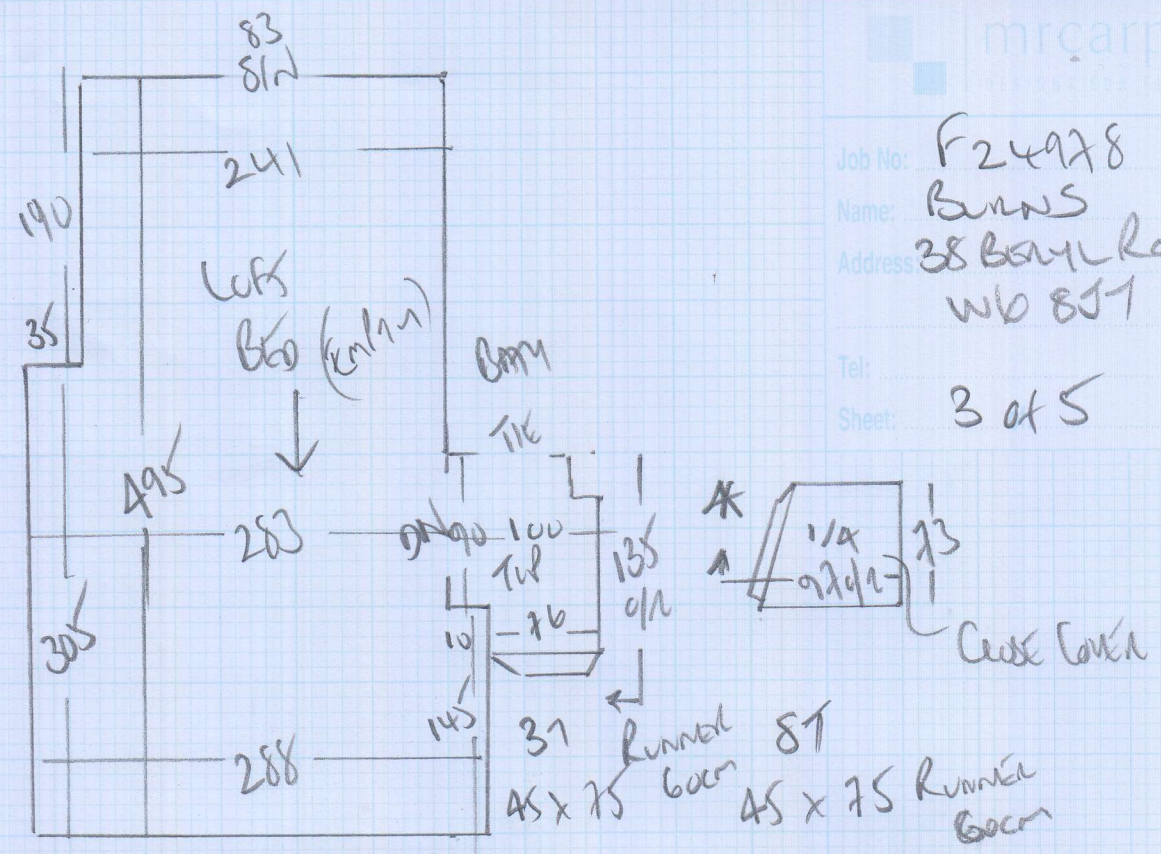 mrcarp
Job No: F24978
Name: BURNS
Address: 38 BERYL Ro
W6 8JT
Tel:
Sheet: 3 of 5
83
241
190
LOFT
BED (EMPTY)
35
BATH
TILE
495
283
90
100
TOP
135
O/R
76
305
10
145
288
1/4
97 O/R
73
CLOSE COVER
3T
RUNNER
60cm
45 x 75
8T
45 x 75 RUNNER
60cm